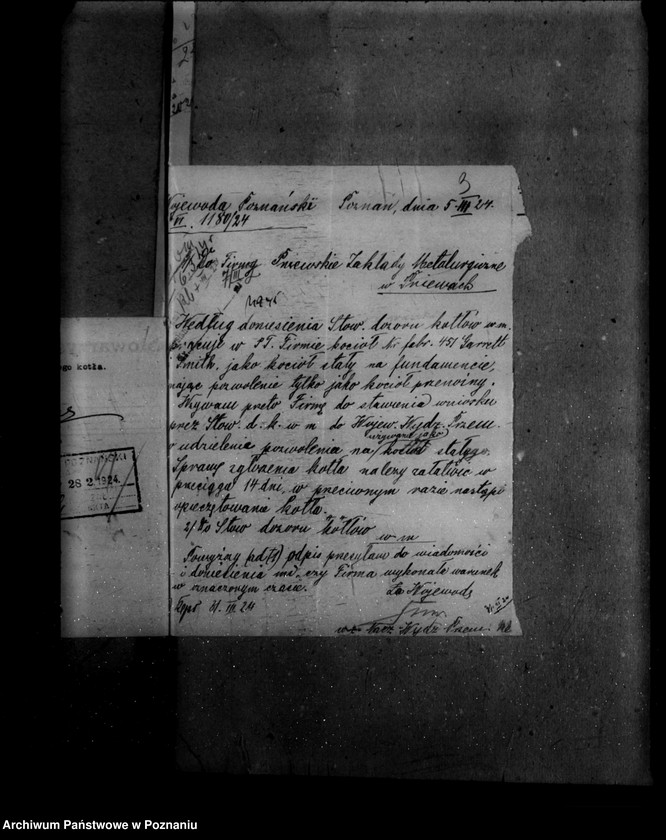 3
Wojewoda Poznański Poznań, dnia 5 III 24.
VI. 1180/24
Do Firmy Pniewskie Zakłady Metalurgiczne
w Pniewach
Według doniesienia Stow. dozoru kotłów w m.
pracuje w P.T. Firmie kocioł Nr fabr. 451 Garrett
Smith. jako kocioł stały na fundamencie,
mając pozwolenie tylko jako kocioł przenośny.
Wzywam przeto Firmę do stawienia wniosku
przez Stow. d. k. w m do Wojew. Wydz. Przem.
o udzielenia pozwolenia na używanie jako kocioł stałego.
Sprawę zgłoszenia kotła należy załatwić w
przeciągu 14 dni, w przeciwnym razie nastąpi
opieczętowanie kotła.
2/ Do Stow dozoru kotłów
w m
Powyższy odpis przesyłam do wiadomości
i doniesienia mi, czy Firma wykonała warunek
w oznaczonym czasie. Za Wojewodę
31. III 24
w z Nacz. Wydz. Przem.
ego kotła.
POZNAŃSKI
28 2. 1924.
Archiwum Państwowe w Poznaniu